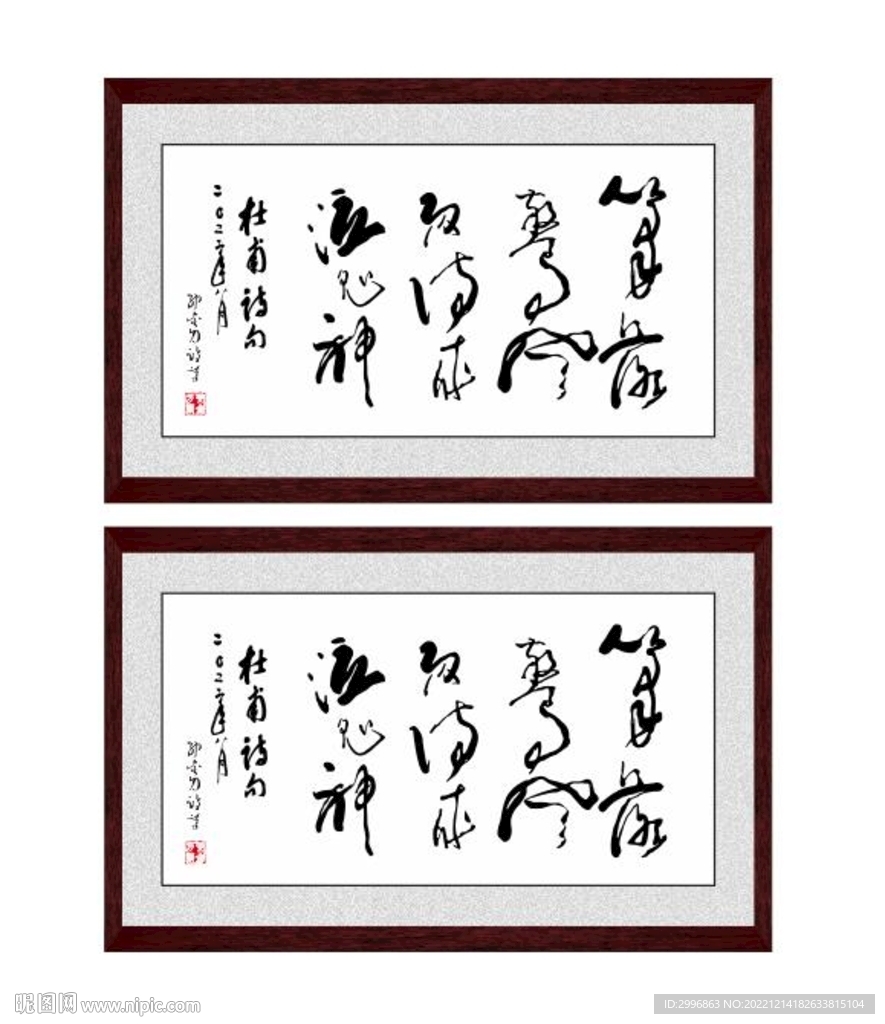 笔落
惊风
诗成
泣鬼神
杜甫诗句
二0二二年八月
笔落
惊风
诗成
泣鬼神
杜甫诗句
二0二二年八月
昵图网 www.nipic.com
ID:2996863 NO:20221214182633815104